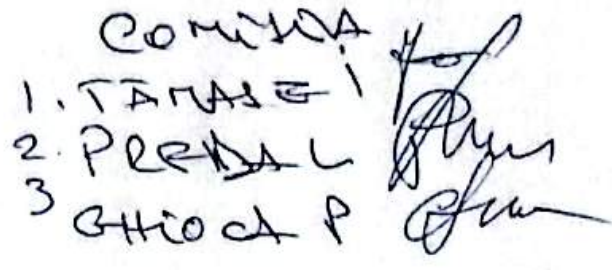 COMISIA
1. TANASE I
2. PREDA L
3 GHIOCA P